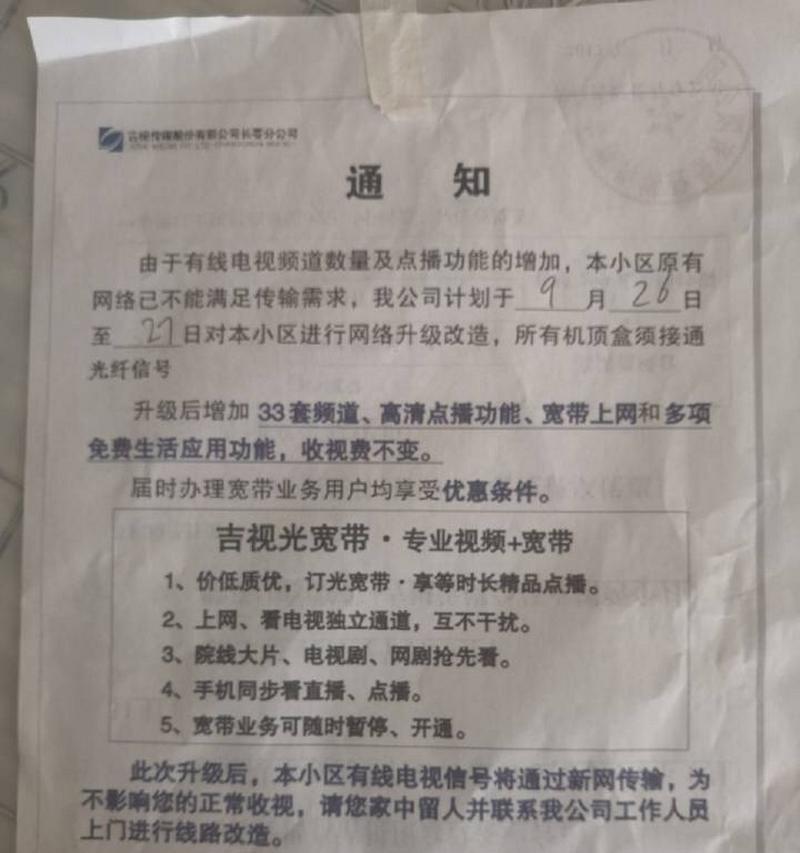 吉视传媒股份有限公司长春分公司
通 知
由于有线电视频道数量及点播功能的增加，本小区原有
网络已不能满足传输需求，我公司计划于 9 月 26 日
至 27 日对本小区进行网络升级改造，所有机顶盒须接通
光纤信号
升级后增加 33套频道、高清点播功能、宽带上网和多项
免费生活应用功能，收视费不变。
届时办理宽带业务用户均享受优惠条件。
吉视光宽带·专业视频+宽带
1、价低质优，订光宽带·享等时长精品点播。
2、上网、看电视独立通道，互不干扰。
3、院线大片、电视剧、网剧抢先看。
4、手机同步看直播、点播。
5、宽带业务可随时暂停、开通。
此次升级后，本小区有线电视信号将通过新网传输，为
不影响您的正常收视，请您家中留人并联系我公司工作人员
上门进行线路改造。